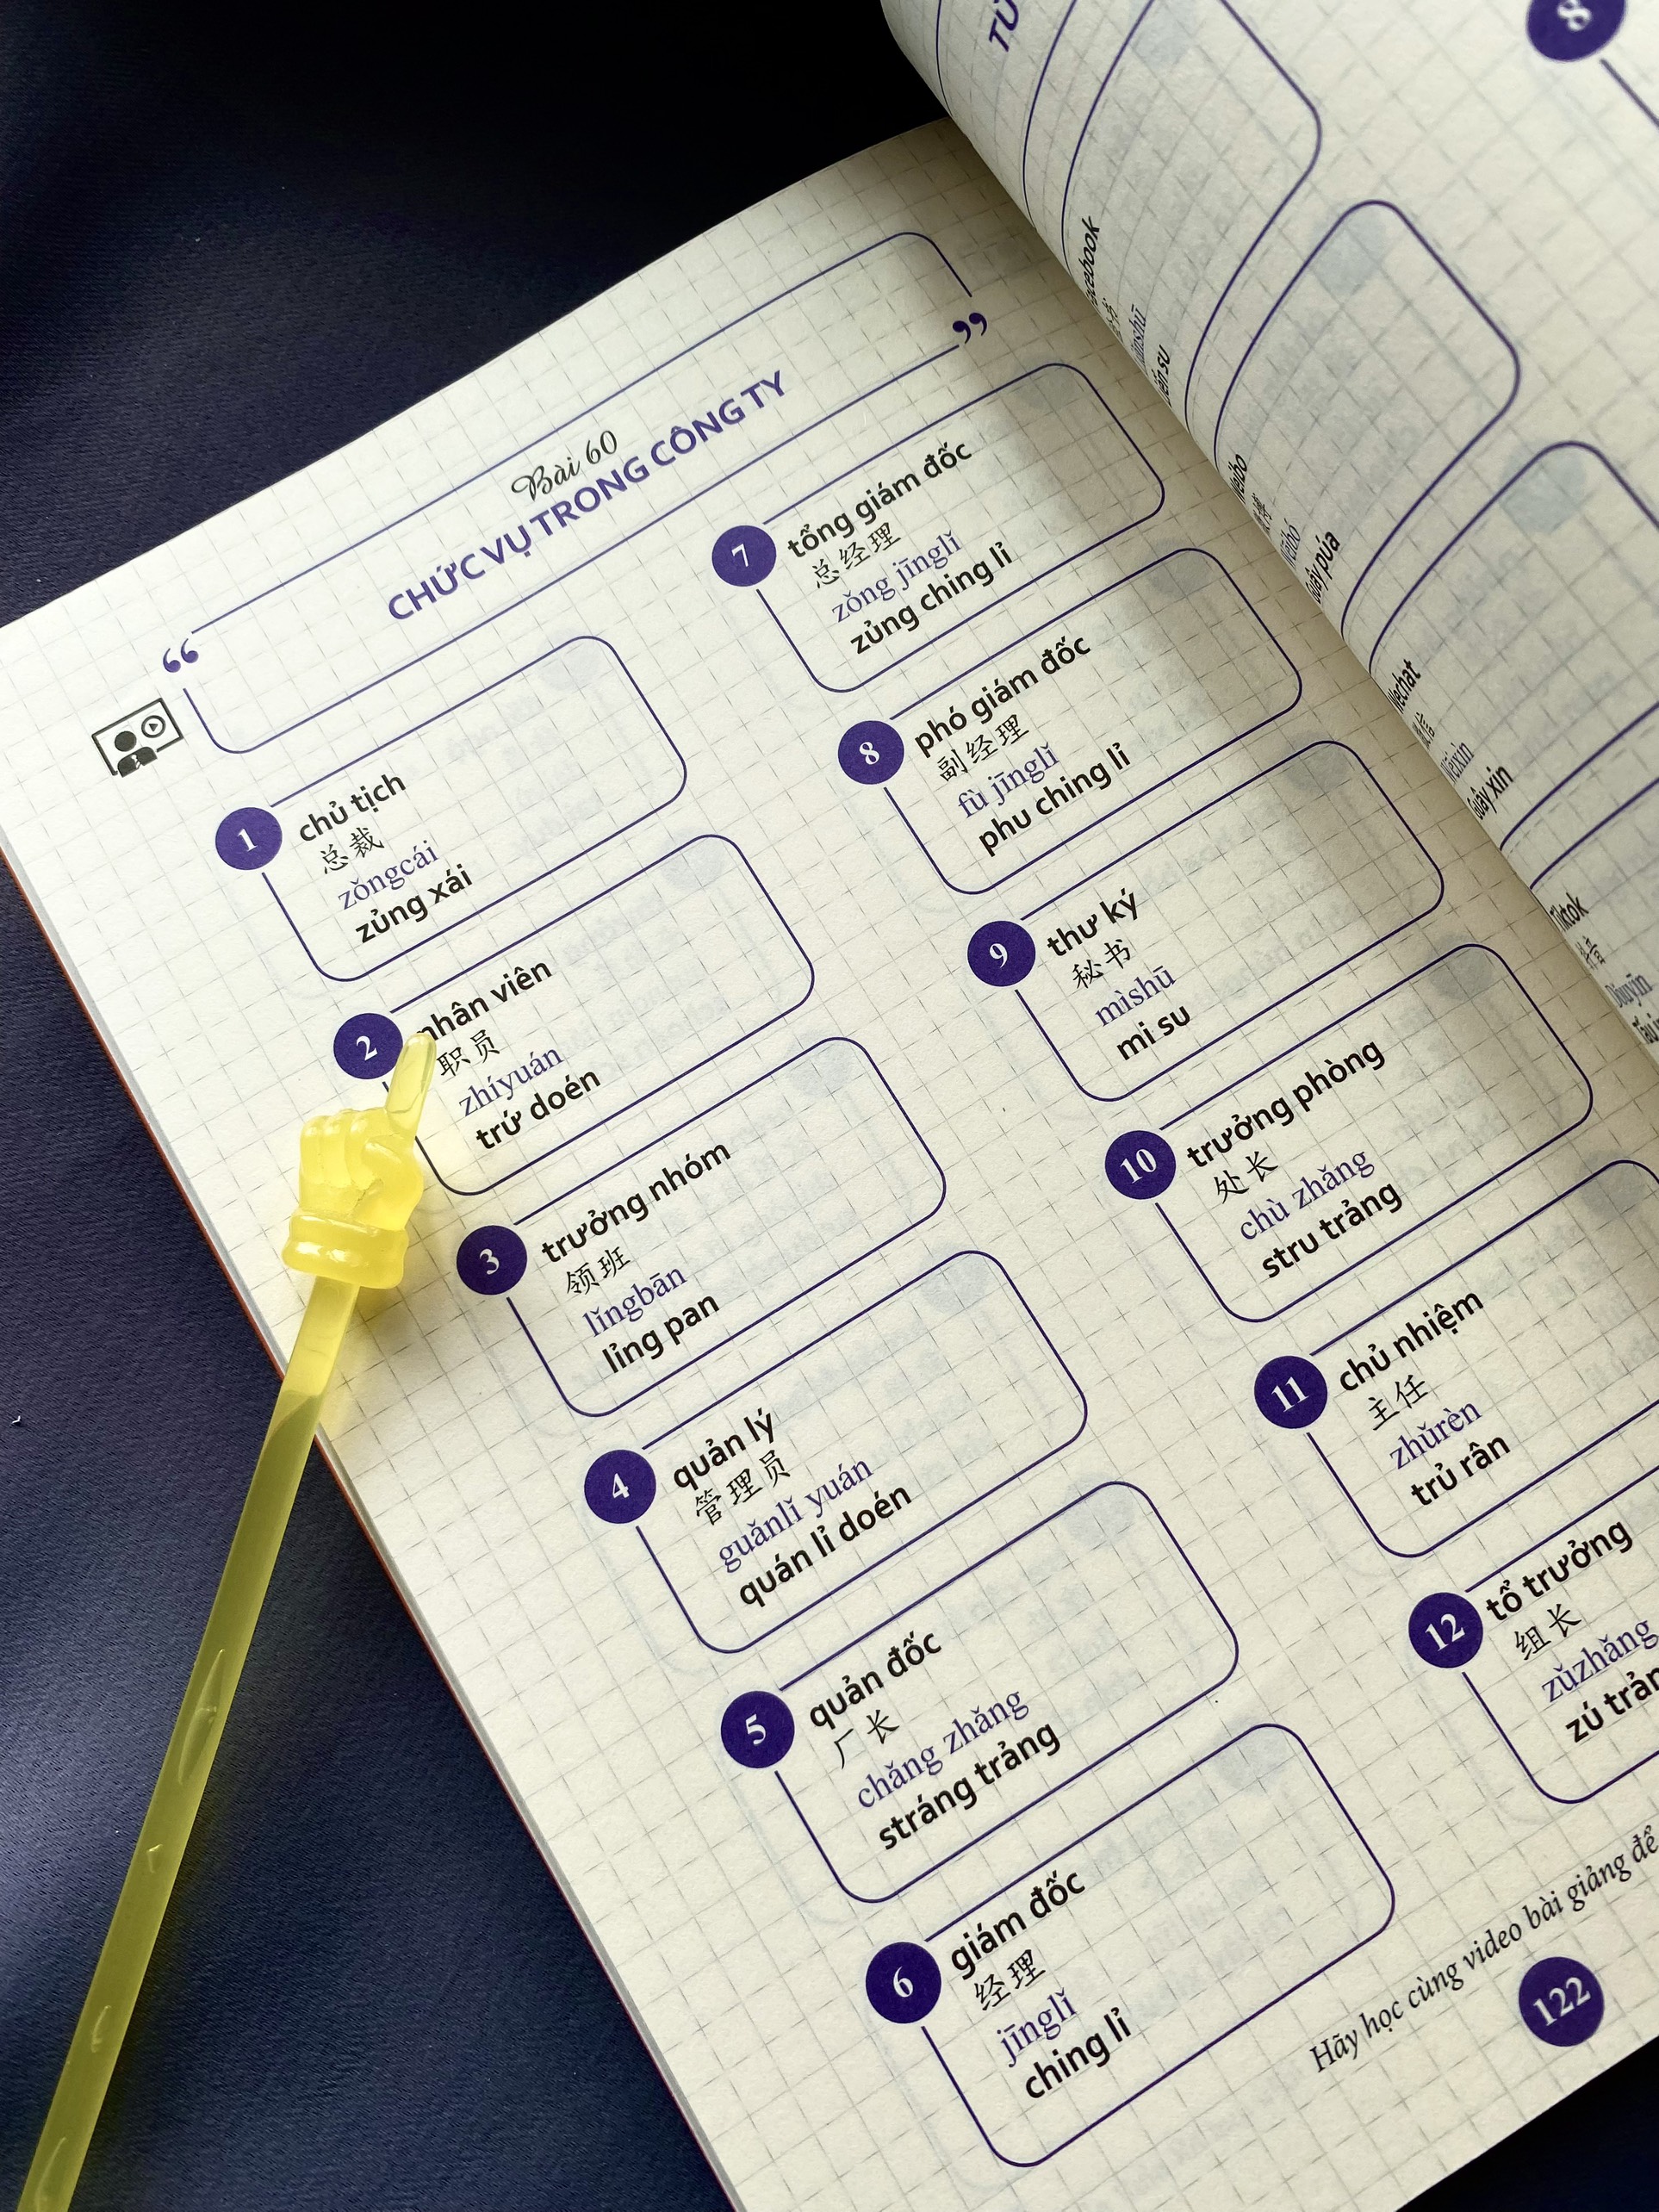 Bài 60
CHỨC VỤ TRONG CÔNG TY
1
chủ tịch
总裁
zǒngcái
zủng xái
2
nhân viên
职员
zhíyuán
trứ doén
3
trưởng nhóm
领班
lǐngbān
lỉng pan
4
quản lý
管理员
guǎnlǐ yuán
quán lỉ doén
5
quản đốc
厂长
chǎng zhǎng
stráng trảng
6
giám đốc
经理
jīnglǐ
ching lỉ
7
tổng giám đốc
总经理
zǒng jīnglǐ
zủng ching lỉ
8
phó giám đốc
副经理
fù jīnglǐ
phu ching lỉ
9
thư ký
秘书
mìshū
mi su
10
trưởng phòng
处长
chù zhǎng
stru trảng
11
chủ nhiệm
主任
zhǔrèn
trủ rân
12
tổ trưởng
组长
zǔzhǎng
zú
Hãy học cùng video bài giảng để
122
8
su
púa
xin
Tiktok
Dǒuyīn